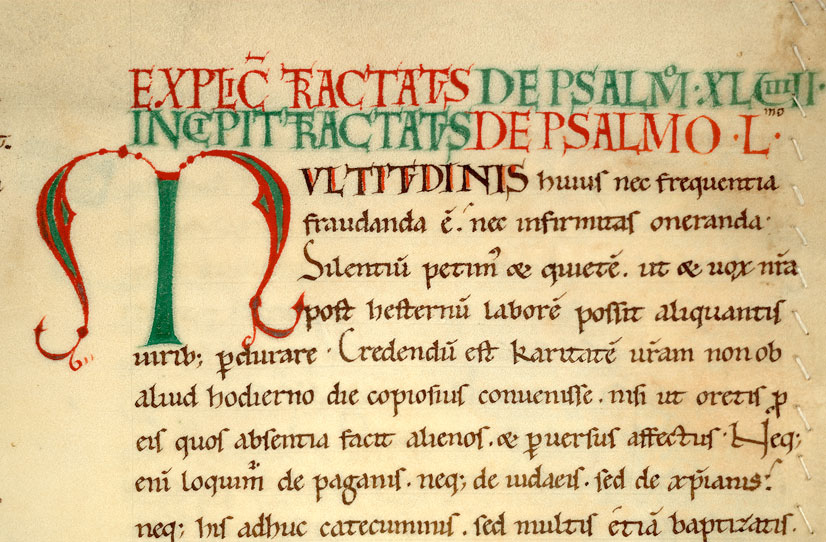 EXPLIC̄ TRACTATUS DE PSALMͦ·XLVIIII·
INCIPIT TRACTATUS DE PSALMO·L·ᵐᵒ
MULTITUDINIS huius nec frequentia
fraudanda ē. nec infirmitas oneranda·
Silentiū petim᷒ & quietē. ut & uox nr̄a
post hesternū laborē possit aliquantis
uirib; ꝑdurare· Credendū est karitatē ur̄am non ob
aliud hodierno die copiosius conuenisse. nisi ut oretis ꝓ
eis quos absentia facit alienos. & ꝑuersus affectus· Neq;
enī loquim᷒ de paganis. neq; de iudaeis. sed de xp̄ianis.
neq; his adhuc catecuminis. sed multis etiā baptizatis.